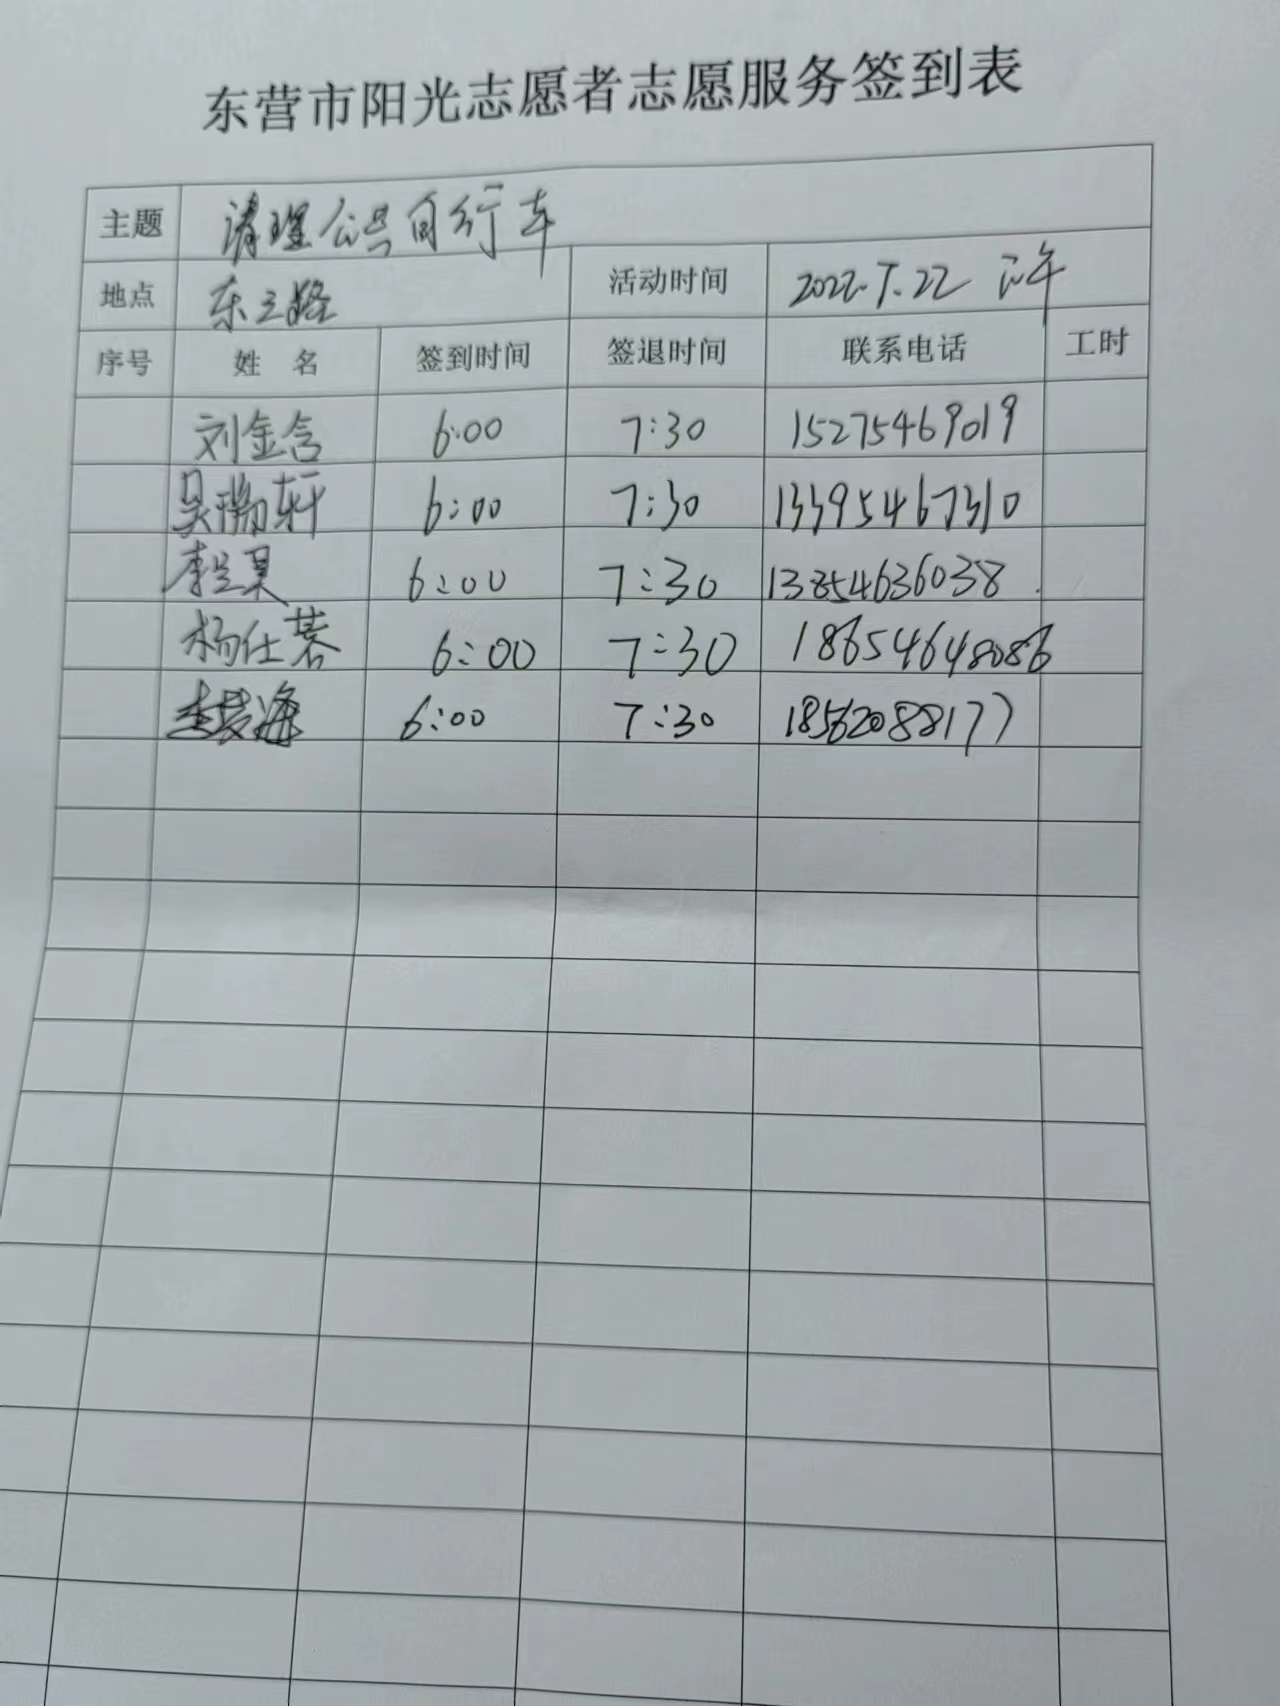 东营市阳光志愿者志愿服务签到表
主题 清理公共自行车
地点 东三路 活动时间 2022.7.22 下午
序号 姓 名 签到时间 签退时间 联系电话 工时
刘金含 6:00 7:30 15275469019
吴瑞轩 6:00 7:30 13395467310
6:00 7:30 13854636038
杨仕 6:00 7:30 18654648086
6:00 7:30 18562088177